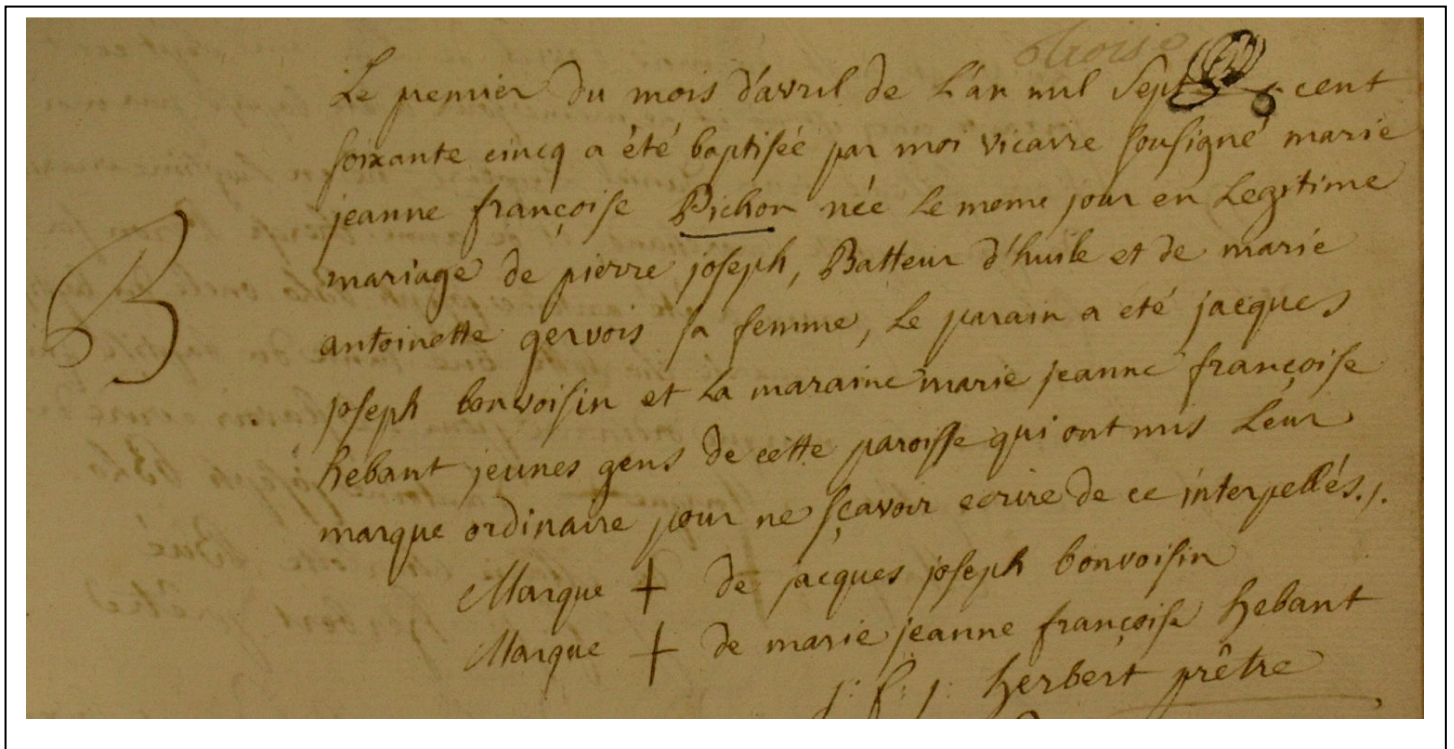 troise
Le premier du mois d'avril de L'an mil Sept cent
soixante cincq a été baptisée par moi vicaire sousigné marie
jeanne françoise Pichon née le meme jour en Legitime
mariage de pierre joseph, Batteur d'huile et de marie
B
antoinette gervois sa femme, Le parain a été jacques
joseph bonvoisin et La maraine marie jeanne françoise
hebant jeunes gens de cette paroisse qui ont mis Leur
marque ordinaire pour ne sçavoir ecrire de ce interpellés./.
Marque + de jacques joseph bonvoisin
Marque + de marie jeanne françoise hebant
j: f: j: herbert prêtre